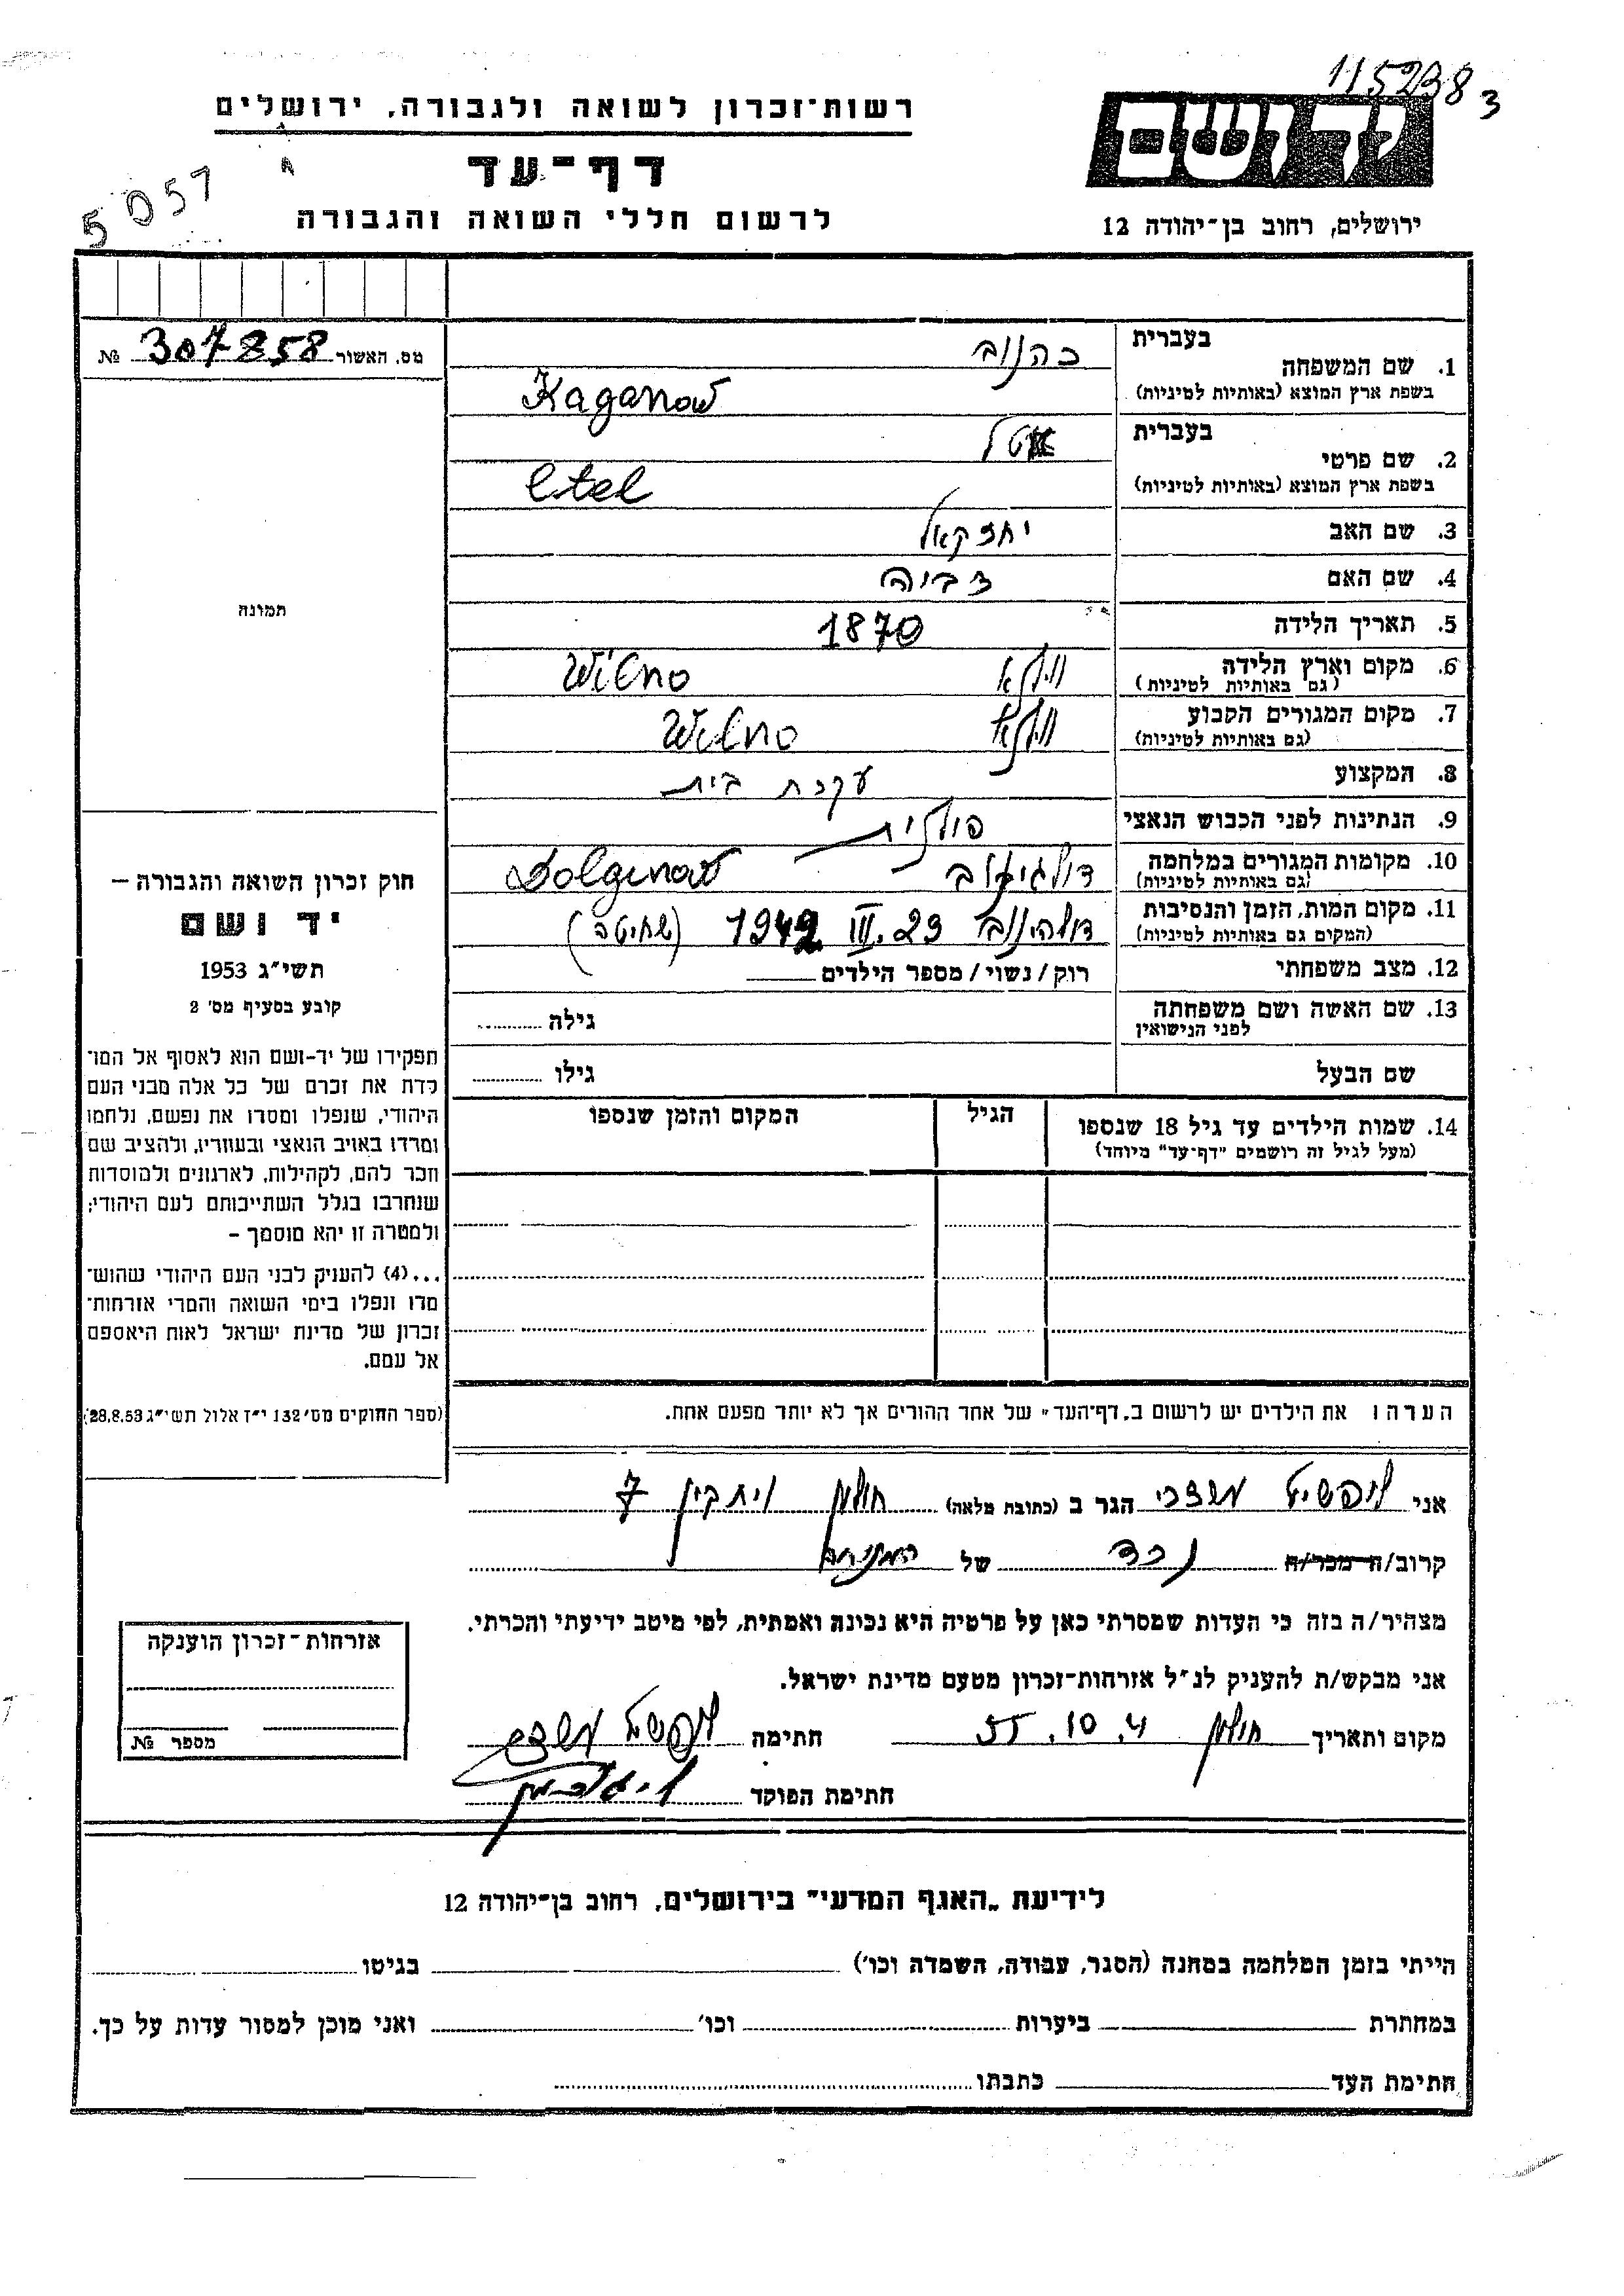 115238 3
רשות־זכרון לשואה ולגבורה, ירושלים
יד ושם
דף־עד
5057
לרשום חללי השואה והגבורה
ירושלים, רחוב בן־יהודה 12
מס. האשור 307858 №
1. שם המשפחה
בעברית כהנוב
בשפת ארץ המוצא (באותיות לטיניות) Kaganow
2. שם פרטי
בעברית אטל
בשפת ארץ המוצא (באותיות לטיניות) Etel
3. שם האב יחזקאל
4. שם האם צביה
5. תאריך הלידה 1870
6. מקום וארץ הלידה (גם באותיות לטיניות) וילנא Wilno
7. מקום המגורים הקבוע (גם באותיות לטיניות) וילנא Wilno
8. המקצוע עקרת בית
9. הנתינות לפני הכבוש הנאצי פולנית
10. מקומות המגורים במלחמה (גם באותיות לטיניות) דולגינוב Dolginow
11. מקום המות, הזמן והנסיבות (המקום גם באותיות לטיניות) דולהינוב 29.III 1942 (שחיטה)
12. מצב משפחתי רוק / נשוי / מספר הילדים
13. שם האשה ושם משפחתה לפני הנישואין גילה
שם הבעל גילו
14. שמות הילדים עד גיל 18 שנספו (מעל לגיל זה רושמים "דף־עד" מיוחד) הגיל המקום והזמן שנספו
תמונה
חוק זכרון השואה והגבורה –
יד ושם
תשי"ג 1953
קובע בסעיף מס' 2
תפקידו של יד-ושם הוא לאסוף אל המו־
לדת את זכרם של כל אלה מבני העם
היהודי, שנפלו ומסרו את נפשם, נלחמו
ומרדו באויב הנאצי ובעוזריו, ולהציב שם
וזכר להם, לקהילות, לארגונים ולמוסדות
שנחרבו בגלל השתייכותם לעם היהודי;
ולמטרה זו יהא מוסמך –
...(4) להעניק לבני העם היהודי שהוש־
מדו ונפלו בימי השואה והמרי אזרחות־
זכרון של מדינת ישראל לאות היאספם
אל עמם.
(ספר החוקים מס' 132 י"ז אלול תשי"ג 28.8.53)
הערה: את הילדים יש לרשום ב„דף־העד" של אחד ההורים אך לא יותר מפעם אחת.
אני ליפשיץ מרדכי הגר ב (כתובת מלאה) חולון 7
קרוב/ה מכר/ה נכד של המנוחה
מצהיר/ה בזה כי העדות שמסרתי כאן על פרטיה היא נכונה ואמתית, לפי מיטב ידיעתי והכרתי.
אני מבקש/ת להעניק לנ"ל אזרחות־זכרון מטעם מדינת ישראל.
מקום ותאריך חולון 4.10.55 חתימה ליפשיץ מרדכי
חתימת הפוקד
אזרחות־זכרון הוענקה
מספר №
לידיעת „האגף המדעי" בירושלים, רחוב בן־יהודה 12
הייתי בזמן המלחמה במחנה (הסגר, עבודה, השמדה וכו') בגיטו
במחתרת ביערות וכו' ואני מוכן למסור עדות על כך.
חתימת העד כתבתו